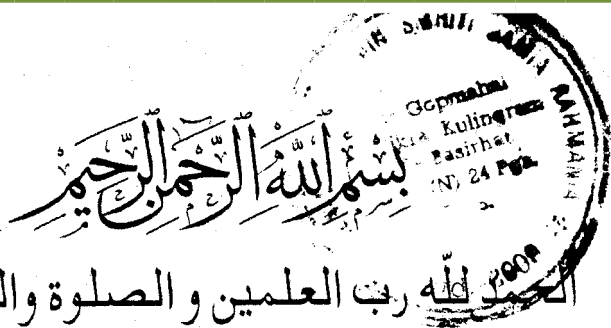 بسم الله الرحمن الرحيم
الحمد لله رب العلمين و الصلوة وال
RAHMANIA
Kulingram
Basirhat
(N) 24 Pgs.